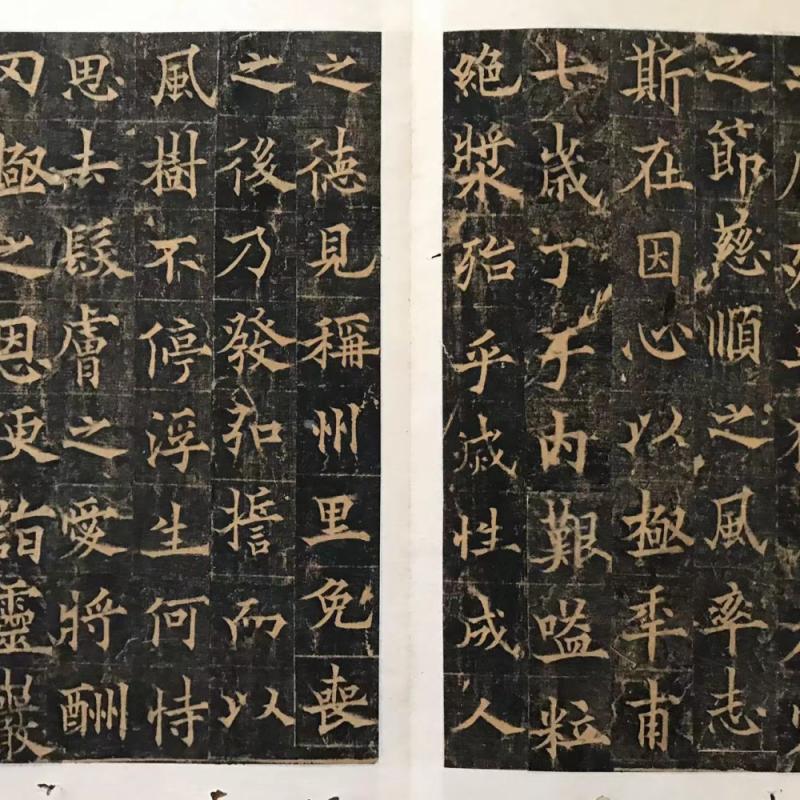 之節慈順之風率志
斯在因心以極年甫
七歲丁于内艱嗌粒
絕漿殆乎滅性成人
之德見稱州里免喪
之後乃發弘誓而以
風樹不停浮生何恃
思去髮膚之愛將酬
極之恩便詣靈巖